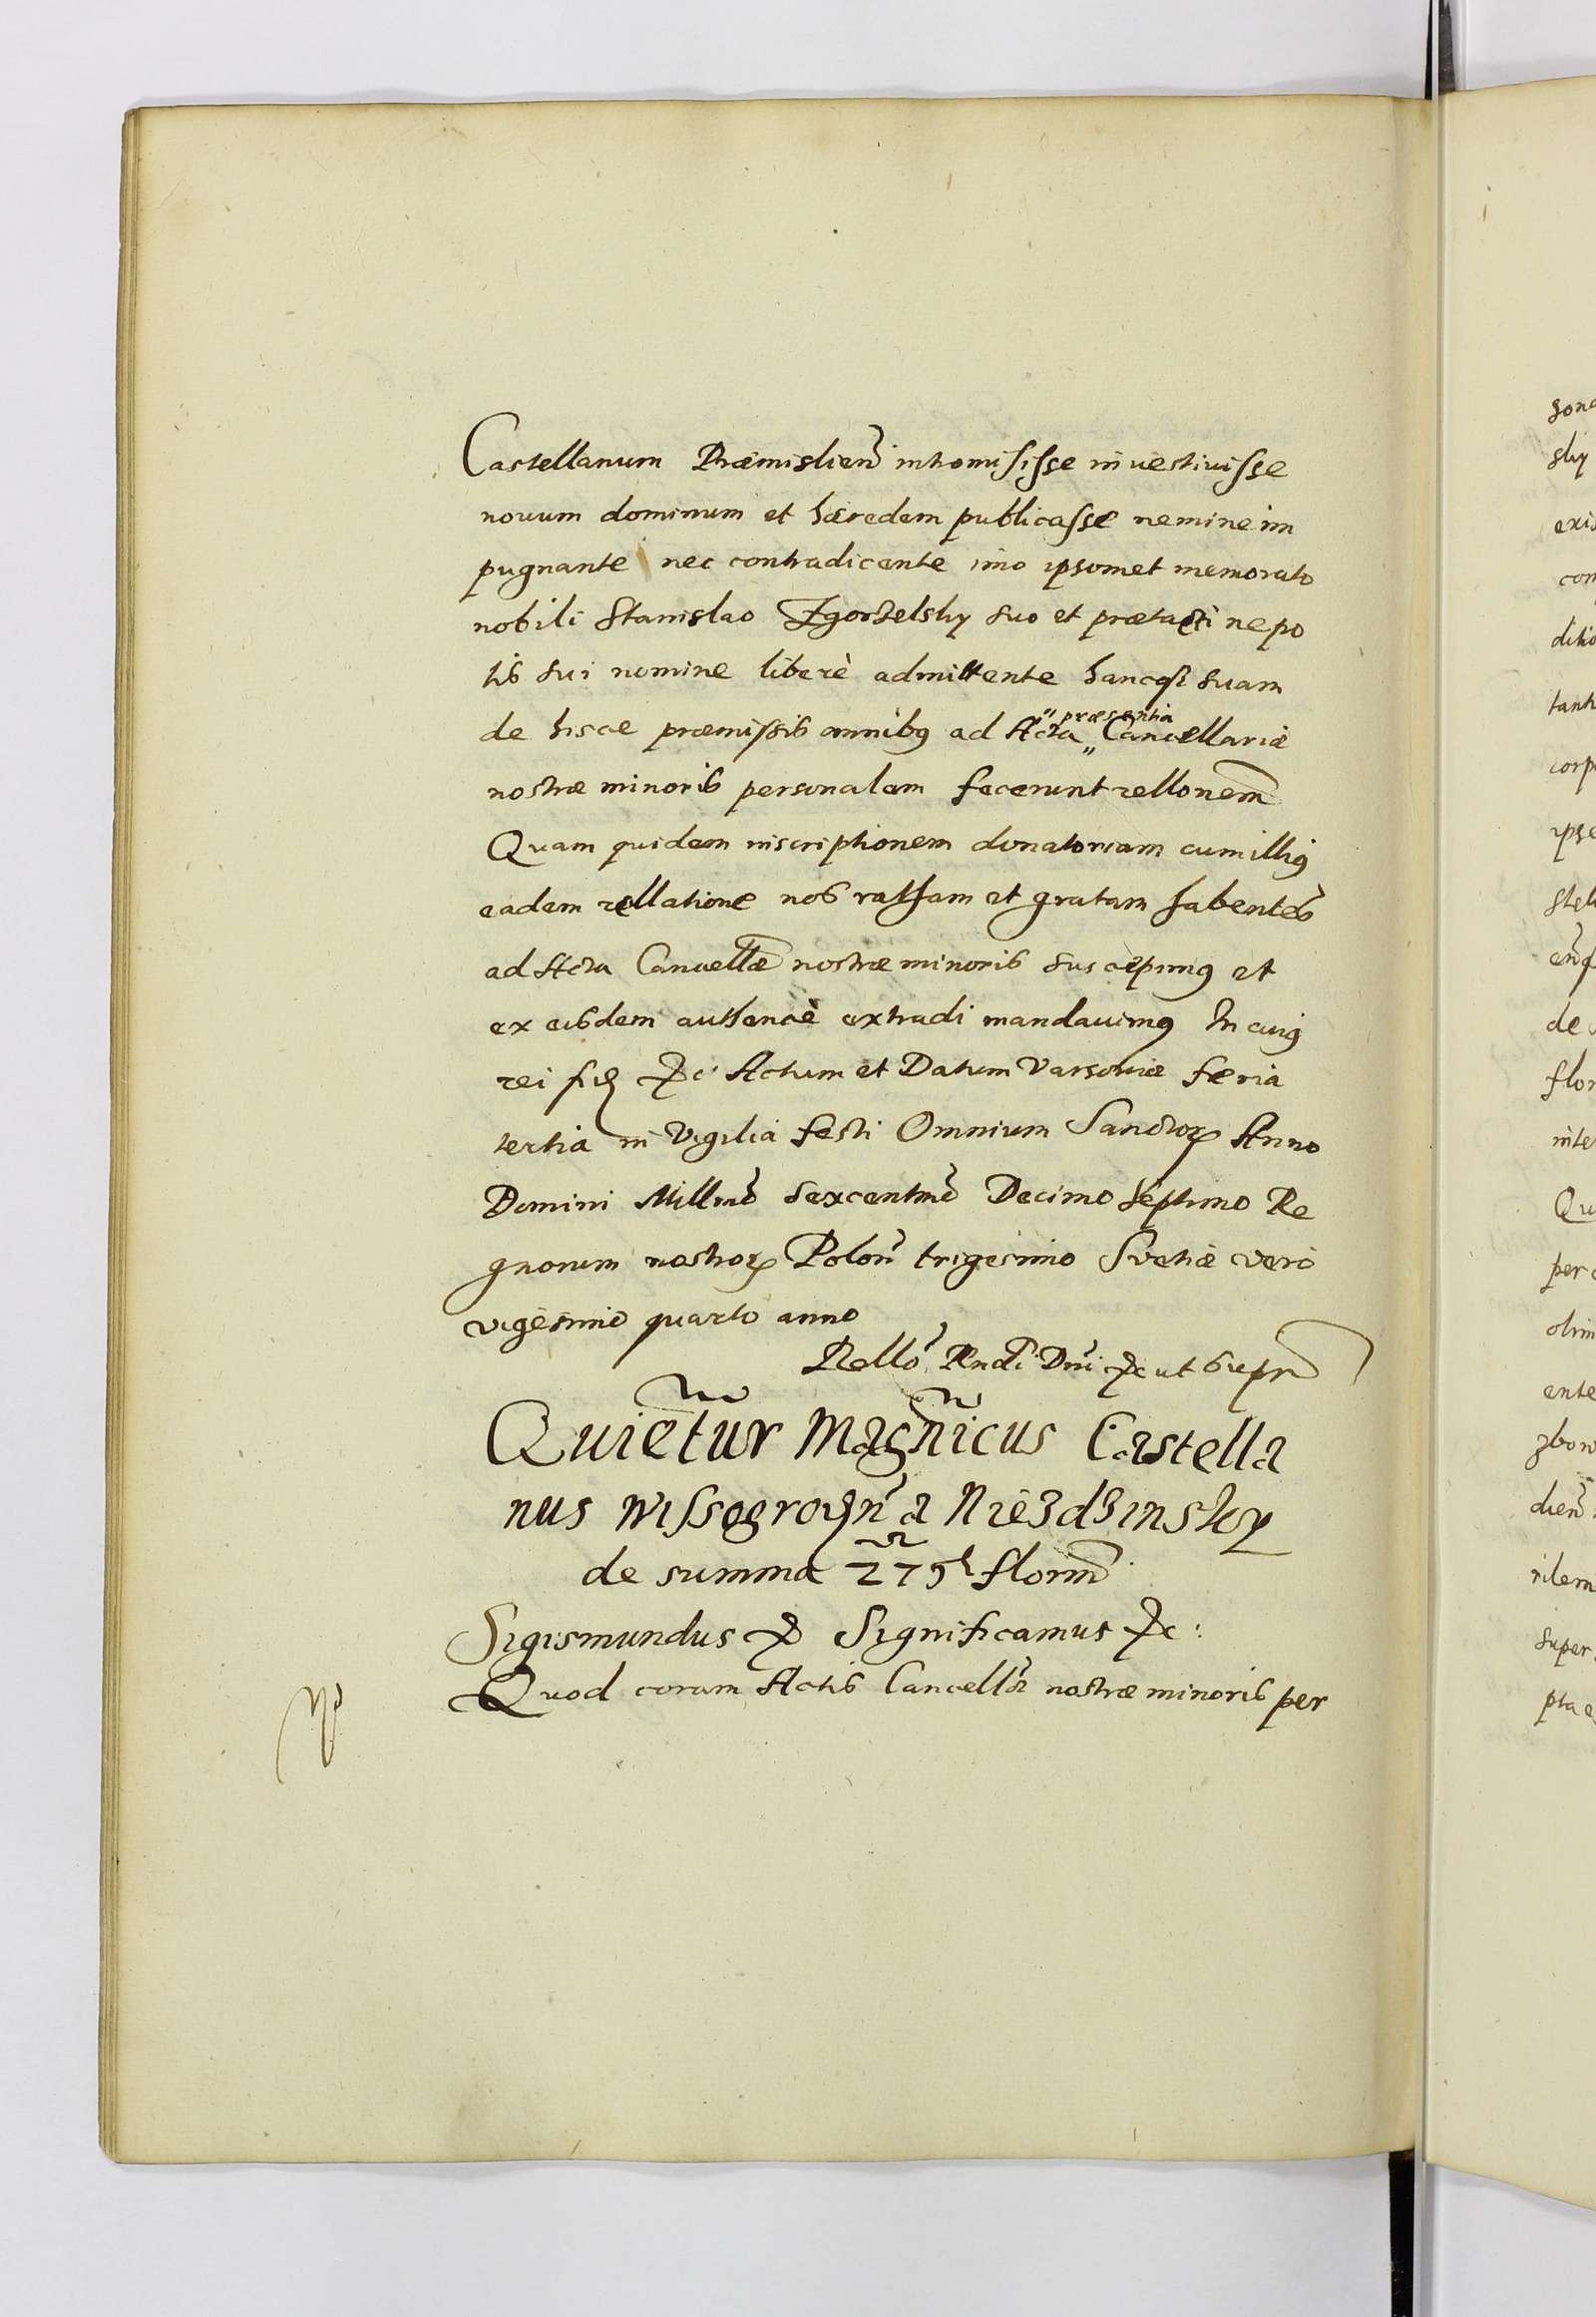 Castellanum Præmislien intromisisse investivisse
novum dominum et hæredem publicasse nemine im
pugnante nec contradicente imo ipsomet memorato
nobili Stanislao Zgorzelsky suo et prætacti nepo
tis sui nomine liberè admittente hancq suam
de hisce præmissis omnibus ad Acta præsentia Cancellariæ
nostræ minoris personalem fecerunt rellonem
Quam quidem inscriptionem donatoriam cum illius
eadem rellatione nos ratham et gratam habentes
ad Acta Cancellæ nostræ minoris suscepimus et
ex eisdem authence extradi mandavimus In cuius
rei fid &c Actum et Datum Varsoviæ feria
tertia in Vigilia festi Omnium Sanctor Anno
Domini Millmo Sexcentmo Decimo Septimo Re
gnorum nostror Polon trigesimo Svetiæ vero
vigesimo quarto anno
Rello Rndi Dni &c ut supra
Quietur Magnicus Castella
nus Wissogrodn a Niezdzinsky
de summa 275 florm
Sigismundus & Significamus &c:
Quod coram Actis Cancellæ nostræ minoris per
sly
de
Qu
olim
ente
dien
rilem
super
pta e